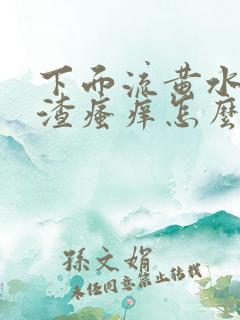 下而流黄水
渣瘙痒怎麽
孫文娟
未经同意禁止转载